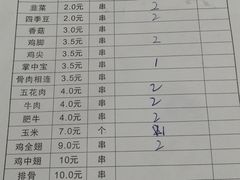 韭菜 2.0元 串 2
四季豆 2.0元 串 2
香菇 3.0元 串
鸡脚 3.5元 串 2
鸡尖 3.5元 串
掌中宝 3.5元 串 1
骨肉相连 3.5元 串
五花肉 4.0元 串 2
牛肉 4.0元 串 2
肥牛 4.0元 串 2
玉米 7.0元 个 1
鸡全翅 9.0元 串 2
鸡中翅 10元 串
排骨 10.0元 串